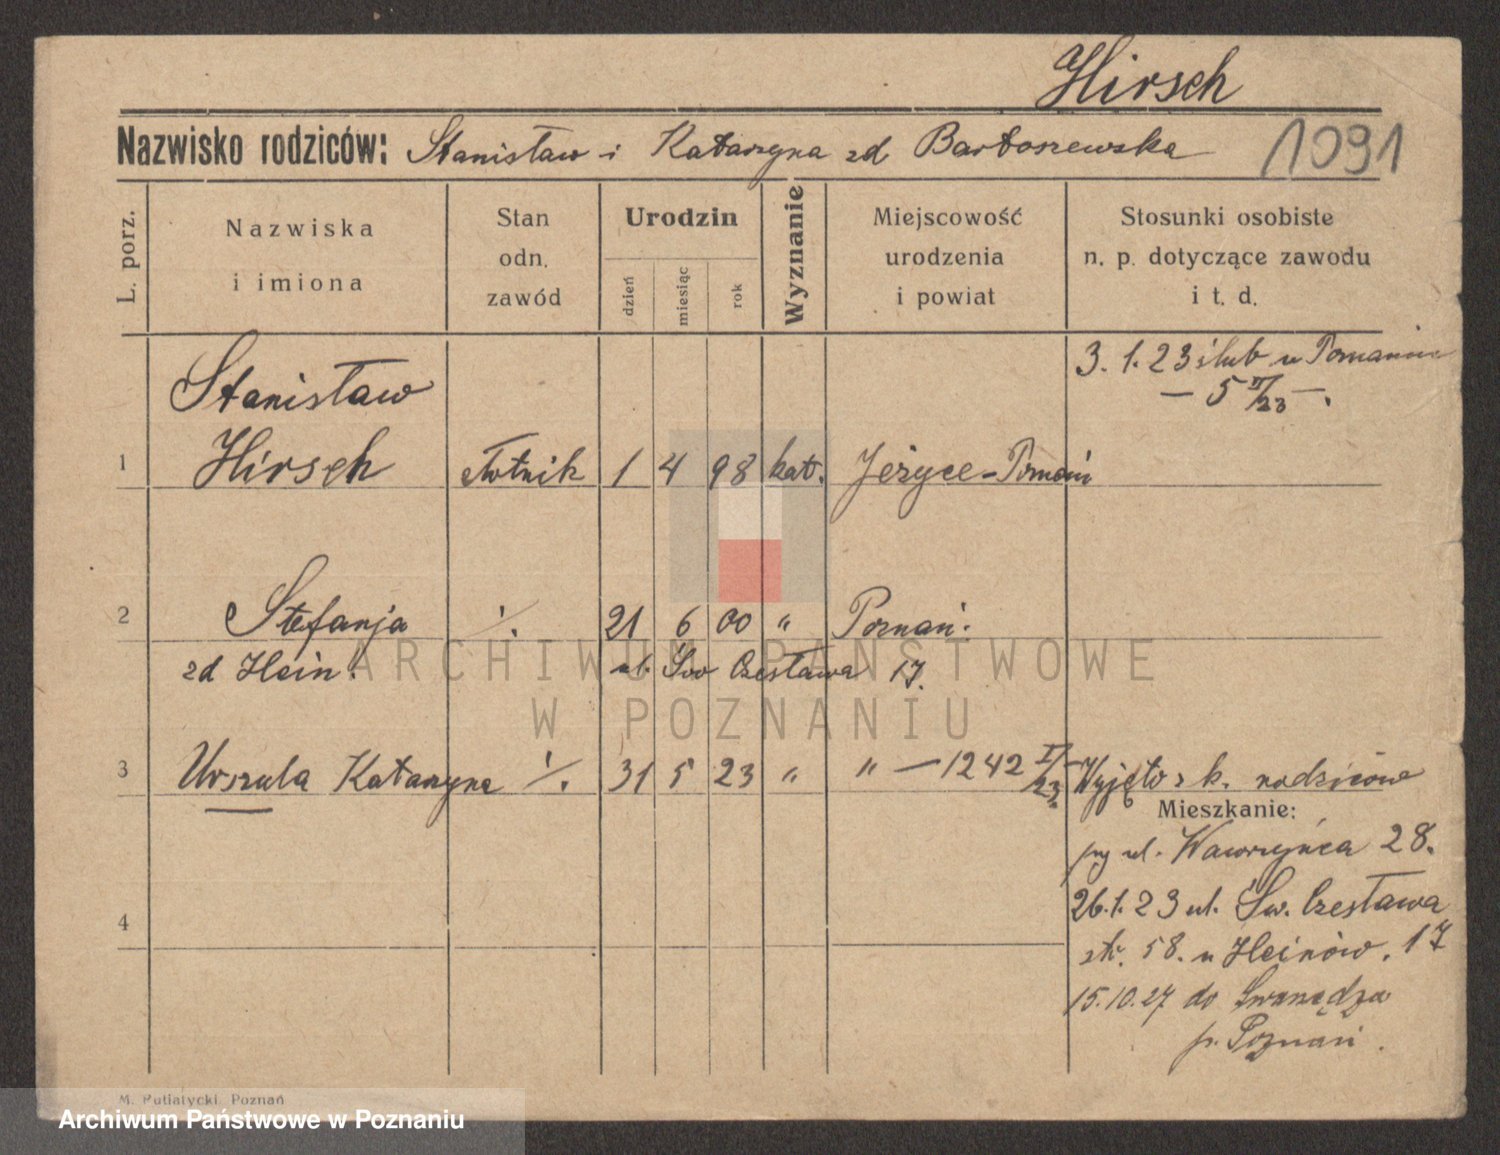 Hirsch
Nazwisko rodziców: Stanisław i Katarzyna zd Bartoszewska 1091
L. porz.
Nazwiska
i imiona
Stan
odn.
zawód
Urodzin
dzień
miesiąc
rok
Wyznanie
Miejscowość
urodzenia
i powiat
Stosunki osobiste
n. p. dotyczące zawodu
i t. d.
3. 1. 23 ślub w Poznaniu
— 5 II/23 —.
Stanisław
1 Hirsch 1 4 98 kat. Jeżyce - Poznań
2 Stefanja ·/. 21 6 00 " Poznań.
zd Hein. ul. Św Czesława 17.
3 Urszula Katarzyna ·/. 31 5 23 " " — 1242 /23. Wyjęto z k. rodziców
Mieszkanie:
ul. Wawrzyńca 28.
26.1.23 ul. Św. Czesława
58. u Heinów. 17
15.10.27 do Swarzędza
p. Poznań.
4
M. Putiatycki, Poznań
ARCHIWUM PAŃSTWOWE
W POZNANIU
Archiwum Państwowe w Poznaniu